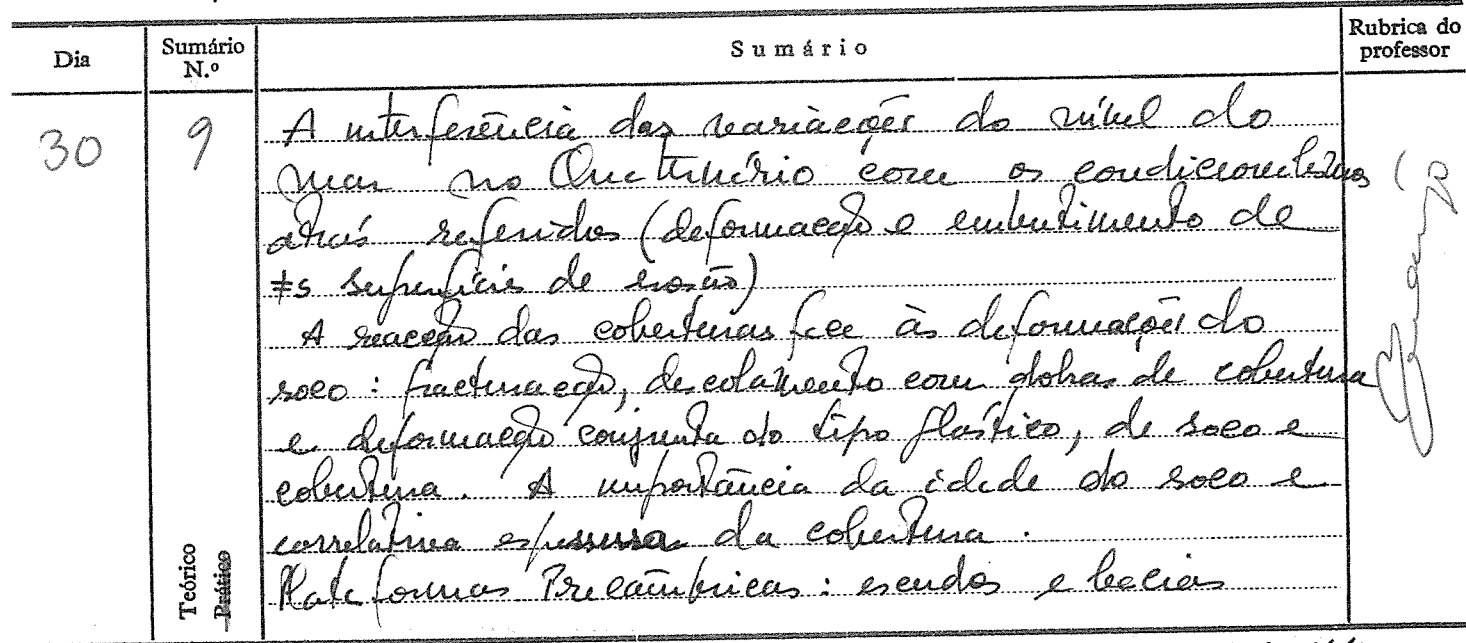 Dia
Sumário N.º
Sumário
Rubrica do professor
30
9
A interferência das variações do nível do
mar no Quaternário com os condicionalismos
atrás referidos (deformação e embutimento de
≠s superfícies de erosão)
A reacção das coberturas face às deformações do
soco: fracturação, descolamento com dobras de cobertura
e deformação conjunta do tipo plástico, de soco e
cobertura. A importância da idade do soco e
correlativa espessura da cobertura.
Plataformas Precâmbricas: escudos e bacias
Teórico
Prático